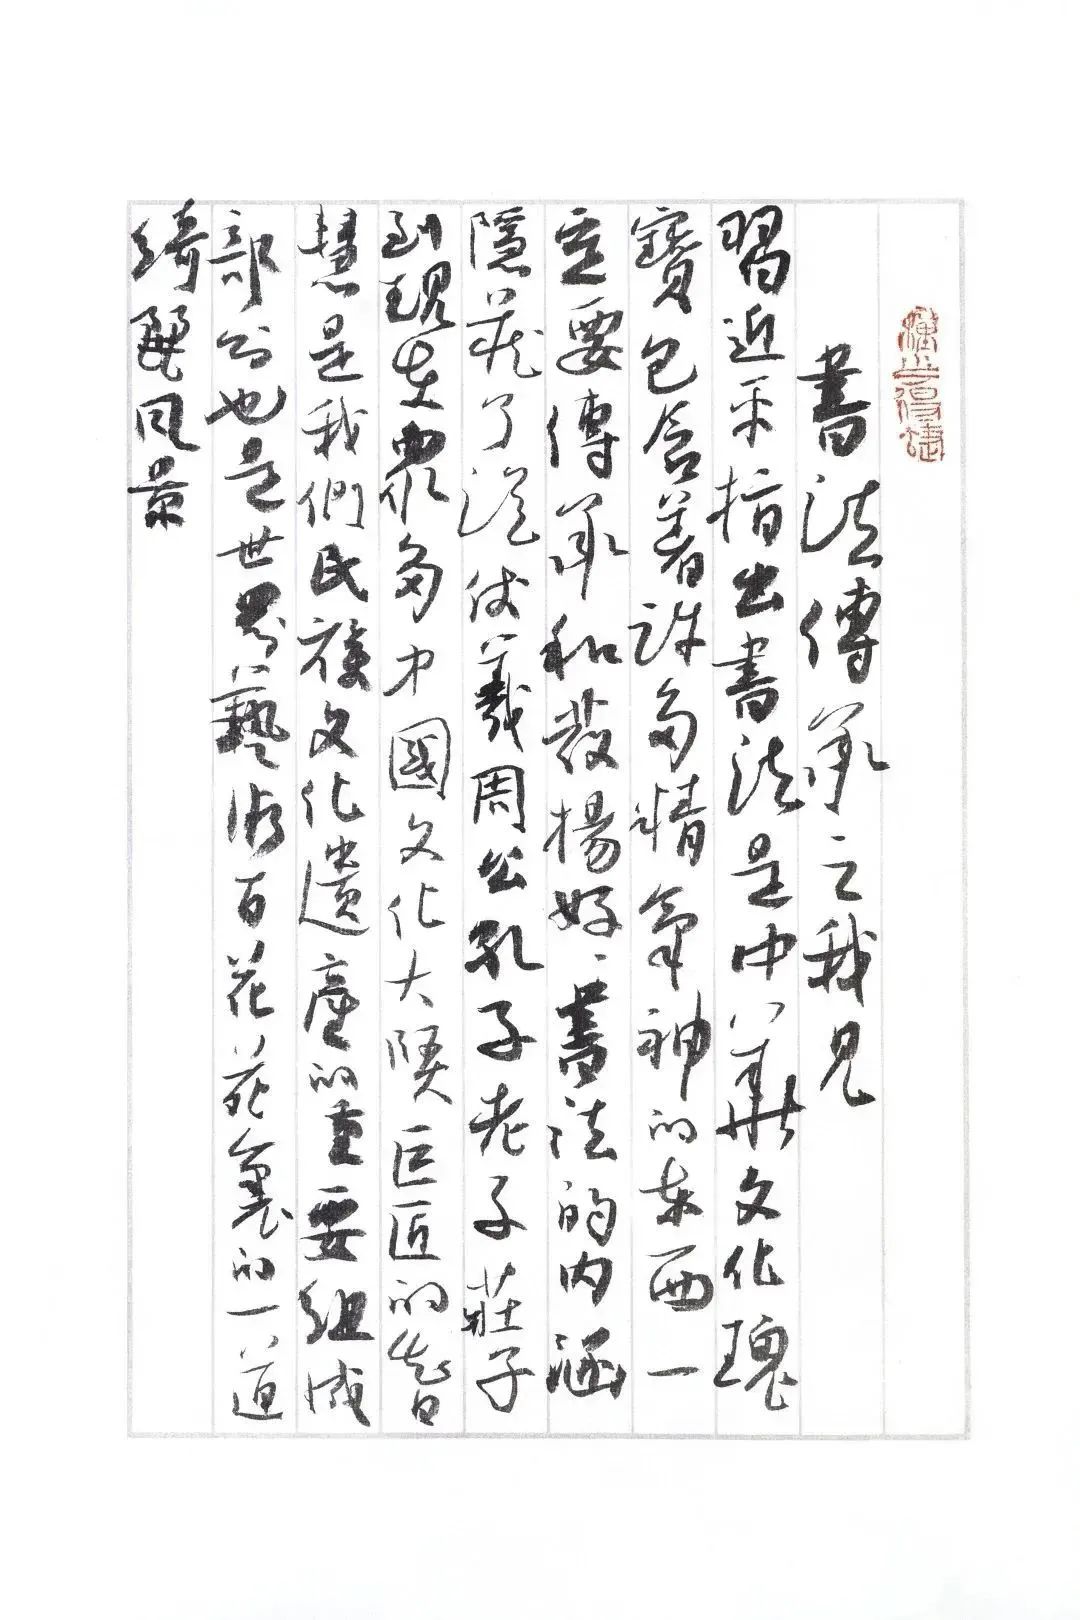 書法傳承之我見
習近平指出書法是中華文化瑰
寶包含着許多精氣神的東西一
定要傳承和發揚好、書法的内涵
隱藏了從伏羲周公孔子老子莊子
到現在眾多中國文化大賢巨匠的智
慧是我們民族文化遺產的重要組成
部分也是世界藝術百花苑裏的一道
綺麗風景